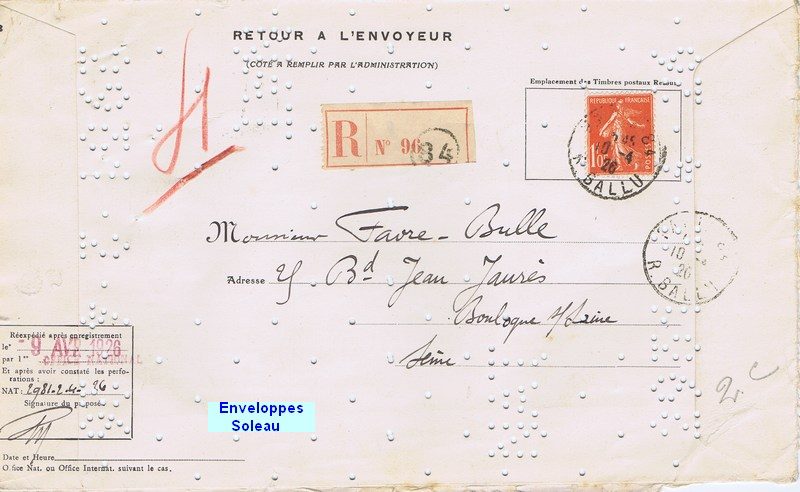 RETOUR A L'ENVOYEUR
(CÔTÉ A REMPLIR PAR L'ADMINISTRATION)
Emplacement des Timbres postaux Retour
REPUBLIQUE FRANÇAISE
1.05
POSTES
10 -4
26
R. BALLU
84
R N° 96
84
Monsieur Favre-Bulle
Adresse 25 Bd Jean Jaurès
Boulogne s/Seine
Seine
10
26
R. BALLU
Réexpédié après enregistrement
le -9 AVR 1926
par l'
OFFICE NATIONAL
Et après avoir constaté les perfo-
rations :
NAT: 2981-24-36
Signature du préposé
Date et Heure
Office Nat. ou Office Internat. suivant le cas.
Enveloppes
Soleau